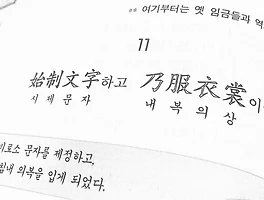 ** 여기부터는 옛 임금들과 역
11
始制文字하고 乃服衣裳이
시 제 문 자 내 복 의 상
비로소 문자를 제정하고,
의복을 입게 되었다.